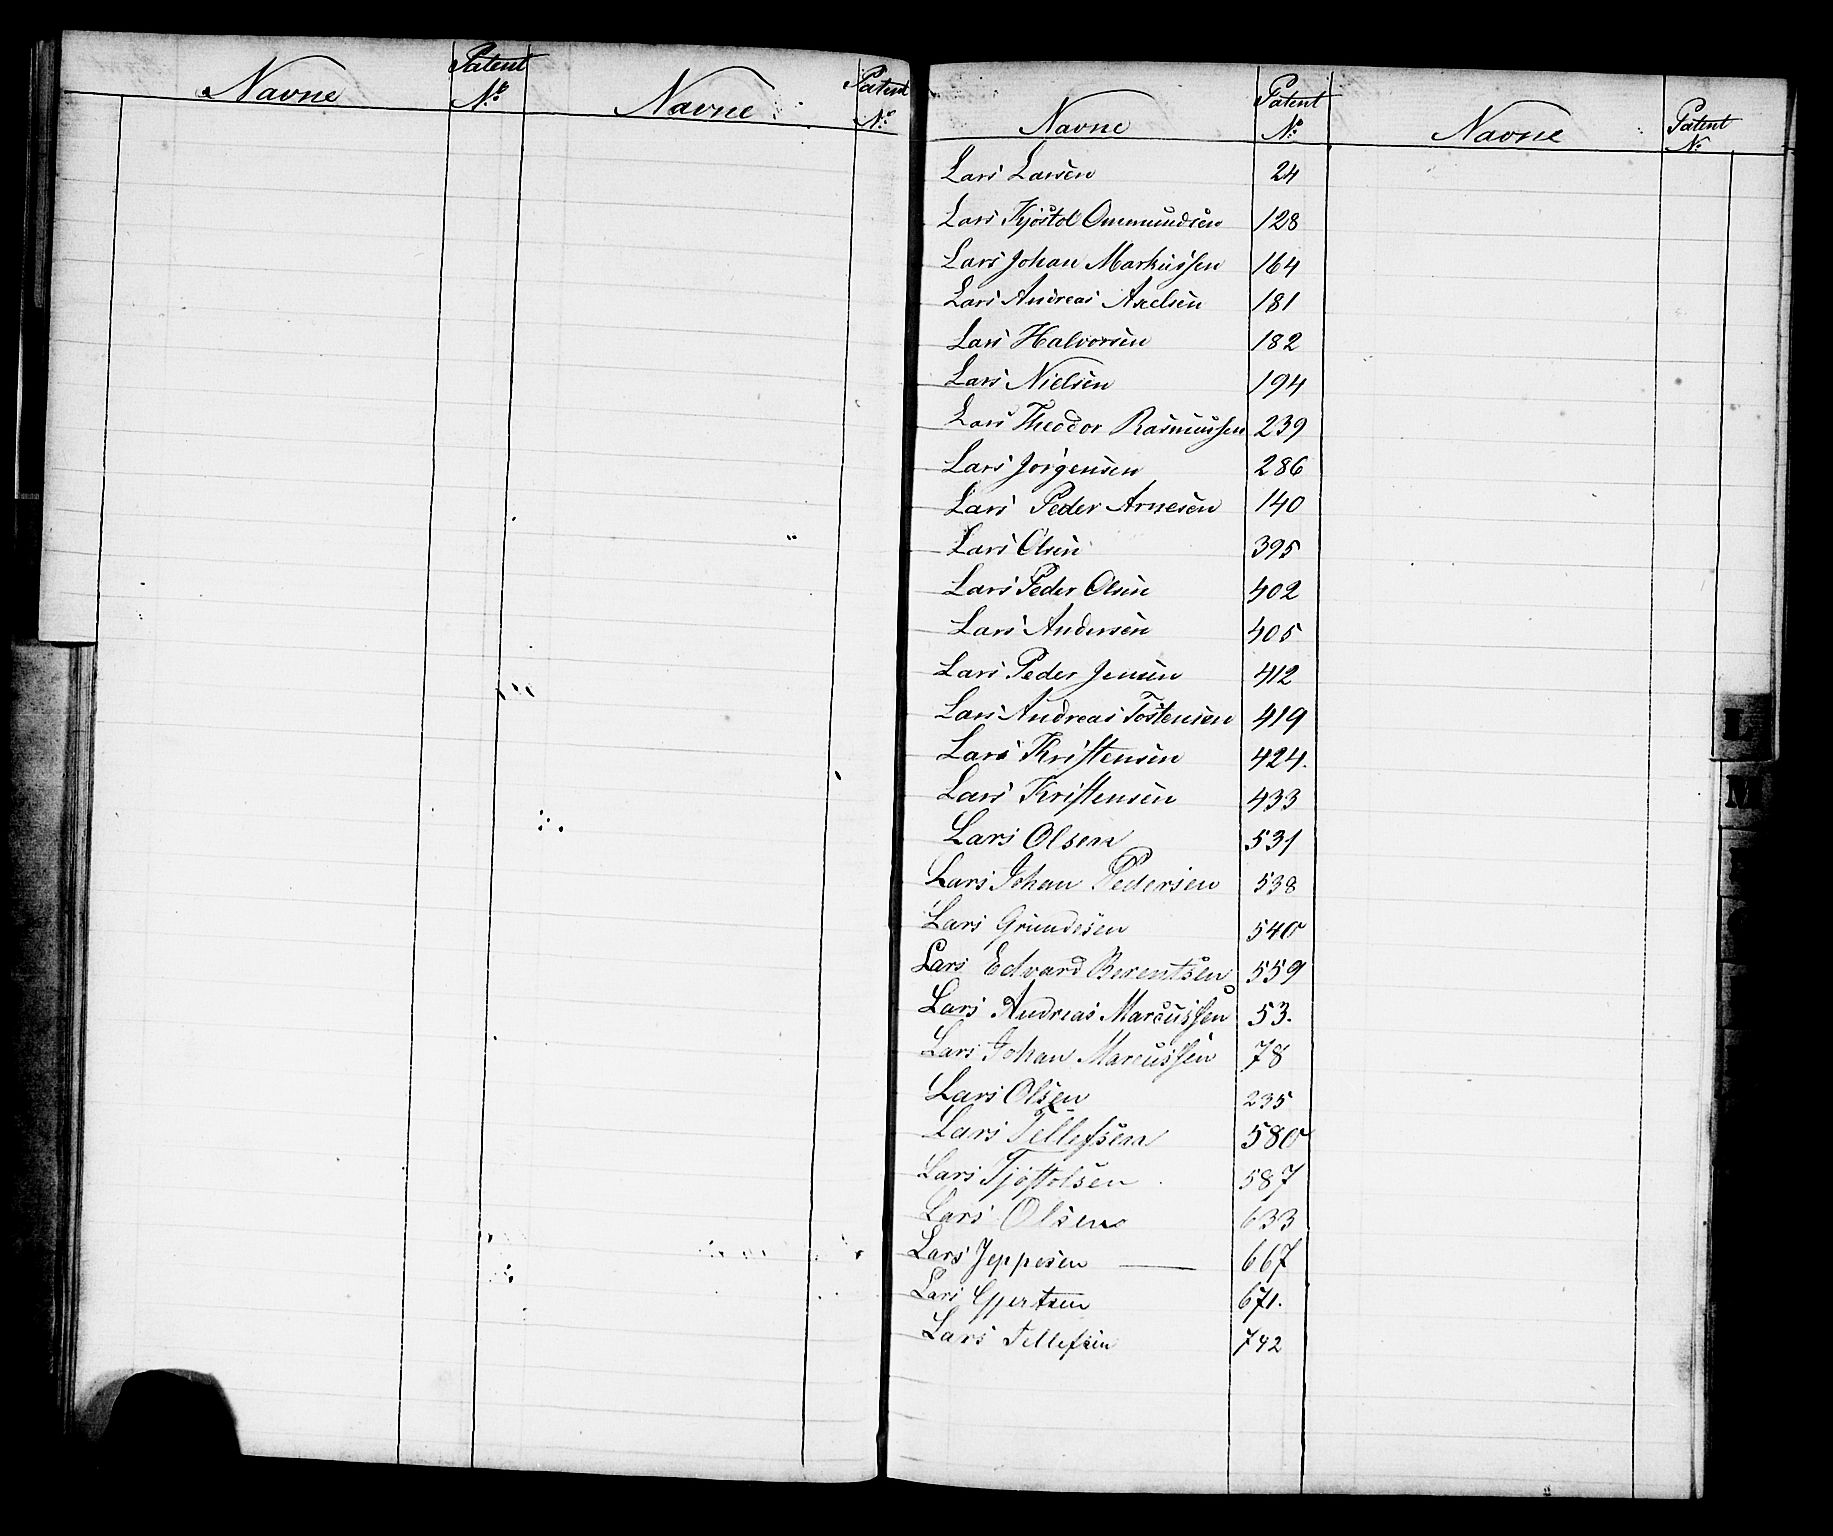 Navne
Patent
No.
Navne
Patent
No.
Navne
Patent
No.
Navne
Patent
No.
Lars Larsen 24
Lars Kjøstol Ommundsen 128
Lars Johan Markussen 164
Lars Andreas Axelsen 181
Lars Halvorsen 182
Lars Nielsen 194
Lars Theodor Rasmussen 239
Lars Jørgensen 286
Lars Peder Arnesen 140
Lars Olsen 395
Lars Peder Olsen 402
Lars Andersen 405
Lars Peder Jensen 412
Lars Andreas Tostensen 419
Lars Kristensen 424.
Lars Kristensen 433
Lars Olsen 531
Lars Johan Pedersen 538
Lars Grundesen 540
Lars Edvard Berentsen 559
Lars Andreas Marcussen 53.
Lars Johan Marcussen 78
Lars Olsen 235
Lars Tellefsen 580
Lars Tjøstolsen 587
Lars Olsen 633
Lars Jeppesen — 667
Lars Gjertsen 671.
Lars Tellefsen 742
L
M